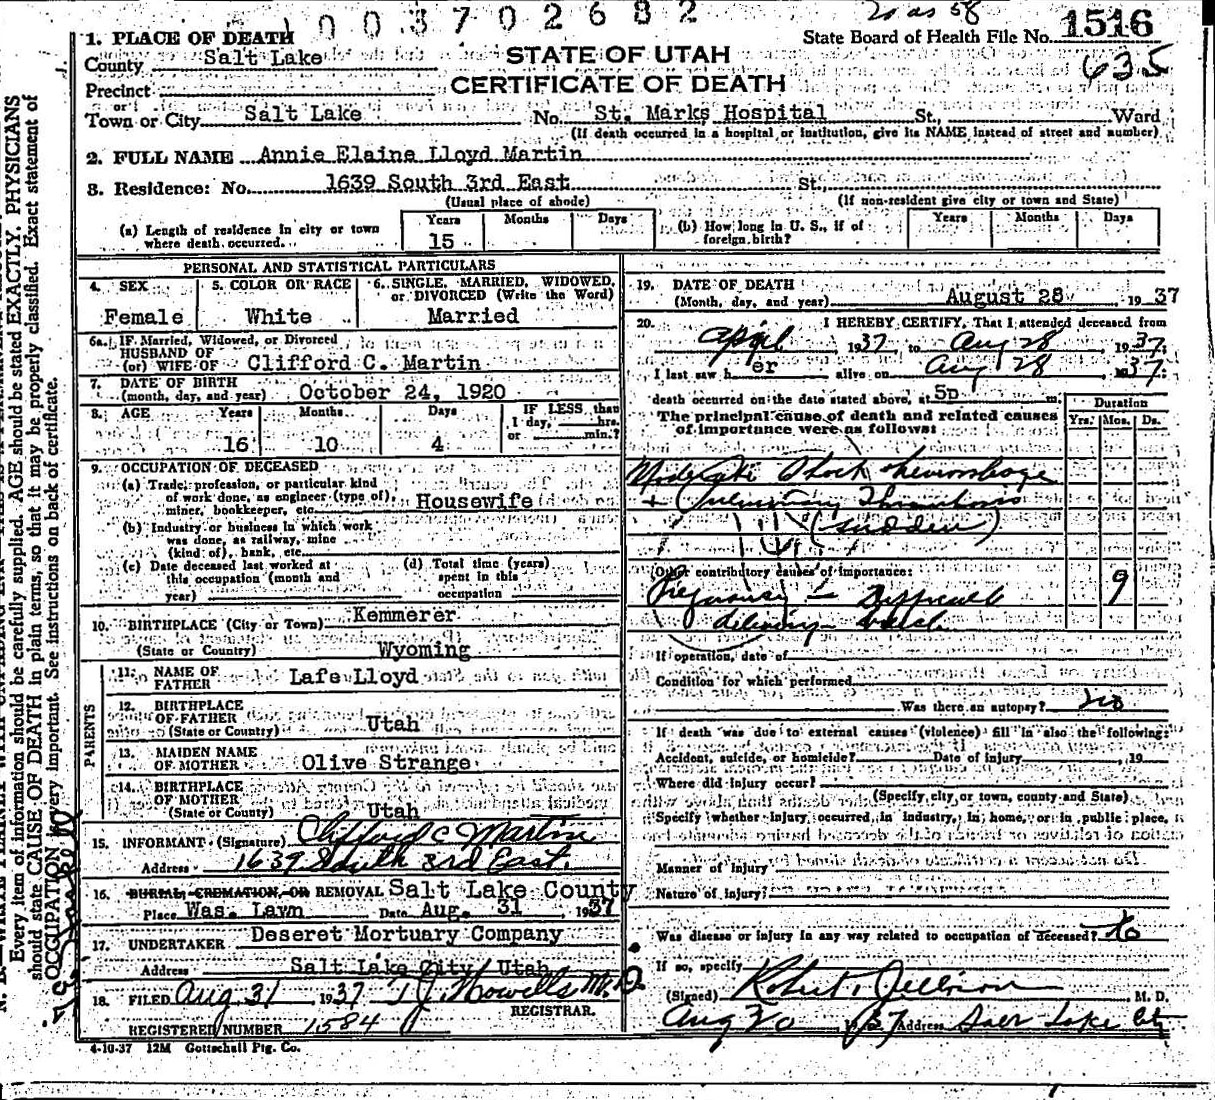 1003702682
20 as 58
1. PLACE OF DEATH
State Board of Health File No. 1516
County Salt Lake
STATE OF UTAH
635
Precinct
CERTIFICATE OF DEATH
or
Town or City Salt Lake No. St. Marks Hospital St., Ward
(If death occurred in a hospital or institution, give its NAME instead of street and number)
2. FULL NAME Annie Elaine Lloyd Martin
3. Residence: No. 1639 South 3rd East St.,
(Usual place of abode) (If non-resident give city or town and State)
(a) Length of residence in city or town where death occurred. Years 15 Months Days
(b) How long in U. S., if of foreign birth? Years Months Days
PERSONAL AND STATISTICAL PARTICULARS
4. SEX Female
5. COLOR OR RACE White
6. SINGLE, MARRIED, WIDOWED, or DIVORCED (Write the Word) Married
6a. IF Married, Widowed, or Divorced
HUSBAND OF
(or) WIFE OF Clifford C. Martin
7. DATE OF BIRTH
(month, day, and year) October 24, 1920
8. AGE Years 16 Months 10 Days 4
IF LESS than
1 day, hrs.
or min.?
9. OCCUPATION OF DECEASED
(a) Trade, profession, or particular kind
of work done, as engineer (type of),
miner, bookkeeper, etc. Housewife
(b) Industry or business in which work
was done, as railway, mine
(kind of), bank, etc.
(c) Date deceased last worked at
this occupation (month and
year)
(d) Total time (years)
spent in this
occupation
10. BIRTHPLACE (City or Town) Kemmerer
(State or Country) Wyoming
PARENTS
11. NAME OF
FATHER Lafe Lloyd
12. BIRTHPLACE
OF FATHER
(State or Country) Utah
13. MAIDEN NAME
OF MOTHER Olive Strange
14. BIRTHPLACE
OF MOTHER
(State or County) Utah
15. INFORMANT (Signature) Clifford C Martin
Address 1639 South 3rd East.
16. BURIAL, CREMATION, OR REMOVAL Salt Lake County
Place Was. Lawn Date Aug. 31, 1937
17. UNDERTAKER Deseret Mortuary Company
Address Salt Lake City, Utah
18. FILED Aug 31 1937 T J Howells M.D.
REGISTRAR.
REGISTERED NUMBER 1584
4-10-37 12M Gottschall Ptg. Co.
19. DATE OF DEATH
(Month, day, and year) August 28 1937
20. I HEREBY CERTIFY, That I attended deceased from
April 1937 to Aug 28 1937
I last saw her alive on Aug 28 1937
death occurred on the date stated above, at 5p m.
Duration
The principal cause of death and related causes
of importance were as follows: Yrs. Mos. Ds.
Moderate Shock hemorrhage
+ Pulmonary Thrombosis
(sudden)
Other contributory causes of importance:
Pregnancy - Difficult 9
delivery breech
If operation, date of
Condition for which performed
Was there an autopsy? no
If death was due to external causes (violence) fill in also the following:
Accident, suicide, or homicide? Date of injury , 19
Where did injury occur?
(Specify city or town, county and State)
Specify whether injury occurred in industry, in home, or in public place,
Manner of injury
Nature of injury
Was disease or injury in any way related to occupation of deceased? No
If so, specify
(Signed) Robert M. D.
Aug 30 1937 Address Salt Lake City
Every item of information should be carefully supplied. AGE should be stated EXACTLY. PHYSICIANS
should state CAUSE OF DEATH in plain terms, so that it may be properly classified. Exact statement of
OCCUPATION is very important. See instructions on back of certificate.